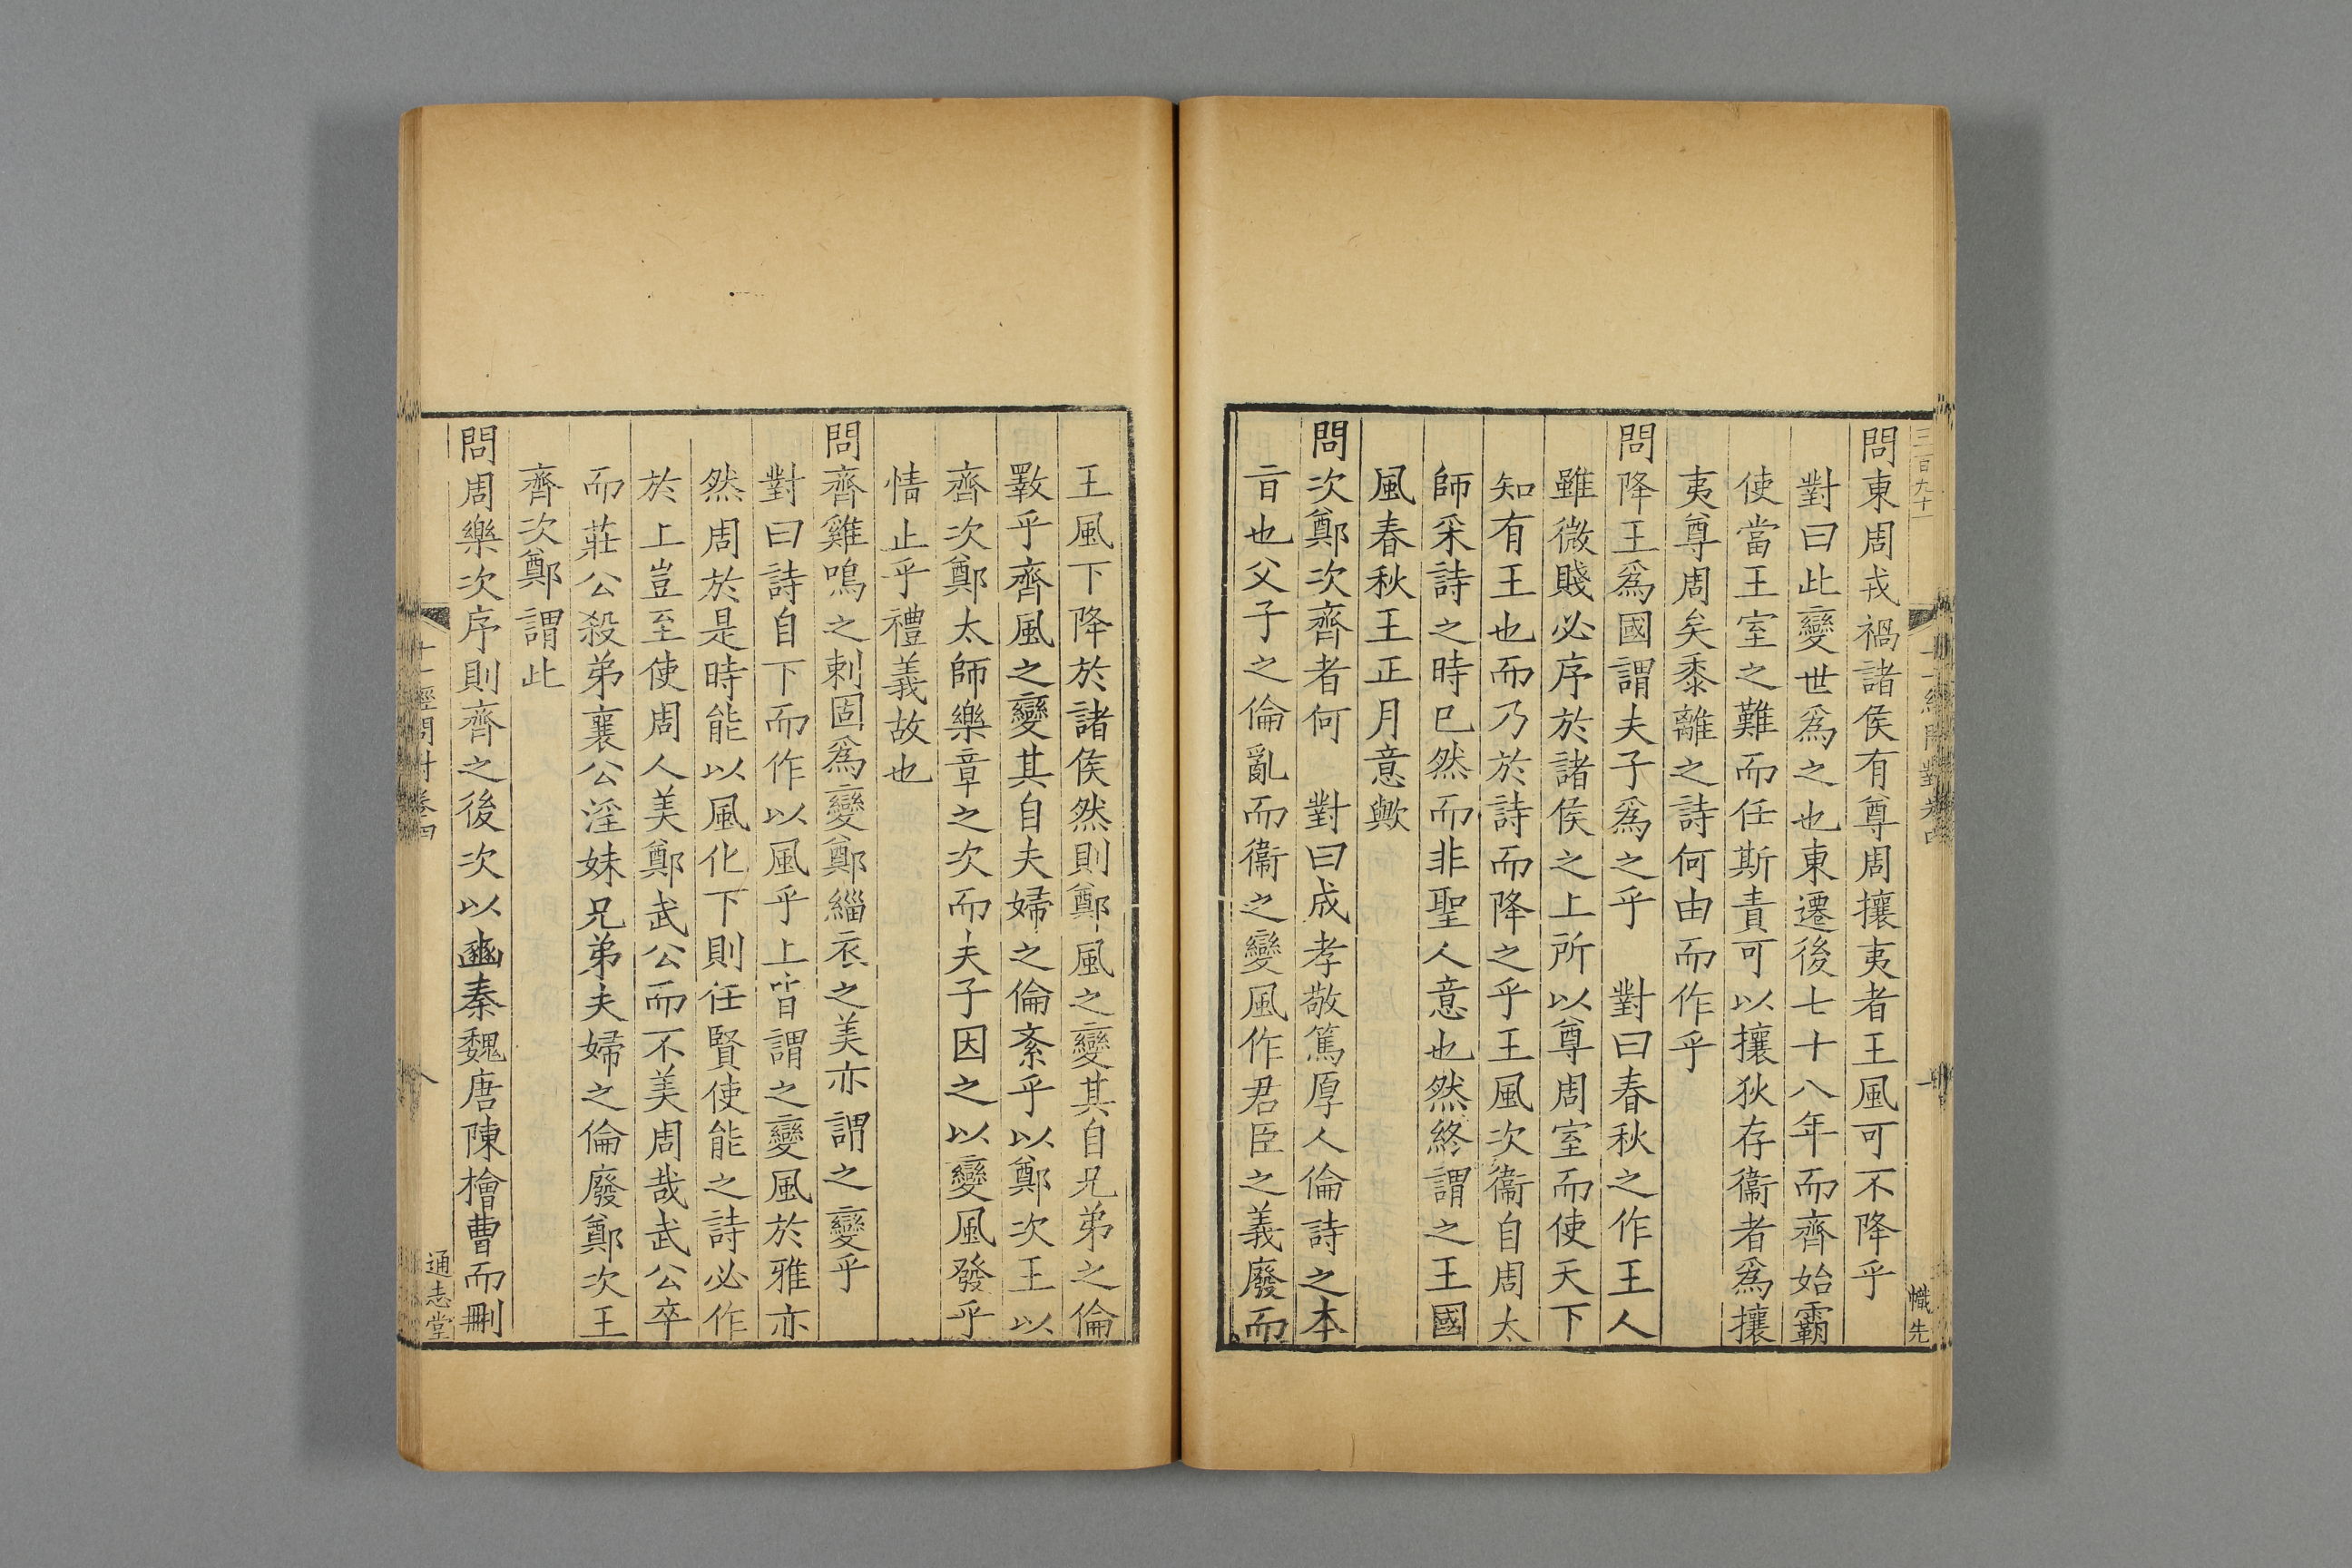 三百九十
十一經問對卷四
一
幟先
問東周戎禍諸侯有尊周攘夷者王風可不降乎
對曰此變世爲之也東遷後七十八年而齊始霸
使當王室之難而任斯責可以攘狄存衞者爲攘
夷尊周矣黍離之詩何由而作乎
問降王爲國謂夫子爲之乎　對曰春秋之作王人
雖微賤必序於諸侯之上所以尊周室而使天下
知有王也而乃於詩而降之乎王風次衞自周太
師采詩之時巳然而非聖人意也然終謂之王國
風春秋王正月意歟
問次鄭次齊者何　對曰成孝敬篤厚人倫詩之本
㫖也父子之倫亂而衞之變風作君臣之義廢而
王風下降於諸侯然則鄭風之變其自兄弟之倫
斁乎齊風之變其自夫婦之倫紊乎以鄭次王以
齊次鄭太師樂章之次而夫子因之以變風發乎
情止乎禮義故也
問齊雞鳴之刺固爲變鄭緇衣之美亦謂之變乎
對曰詩自下而作以風乎上皆謂之變風於雅亦
然周於是時能以風化下則任賢使能之詩必作
於上豈至使周人美鄭武公而不美周哉武公卒
而莊公殺弟襄公淫妹兄弟夫婦之倫廢鄭次王
齊次鄭謂此
問周樂次序則齊之後次以豳秦魏唐陳檜曹而刪
十一經問對卷四
八
通志堂